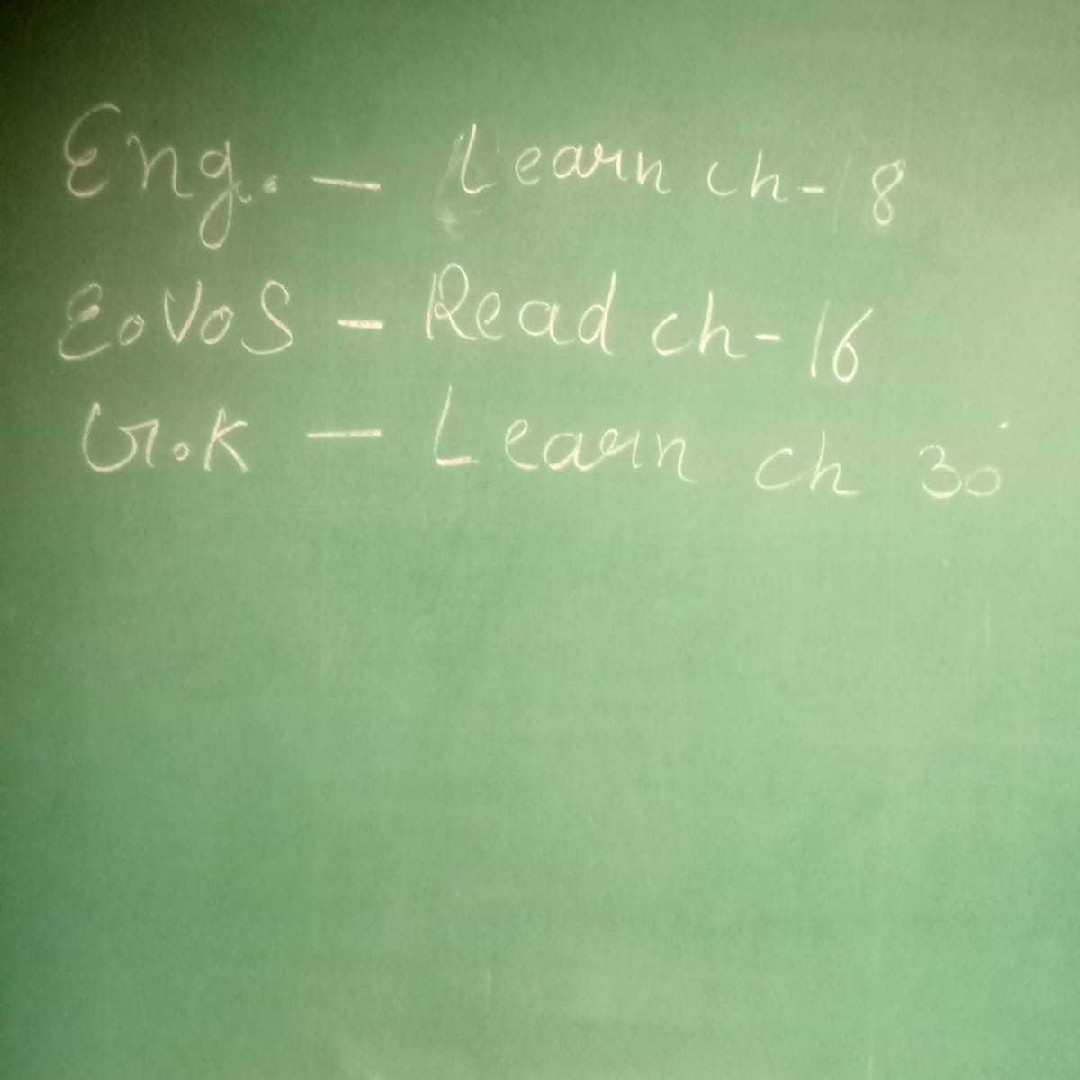 Eng. — Learn ch - 18
E.V.S — Read ch - 16
G.K — Learn ch 30